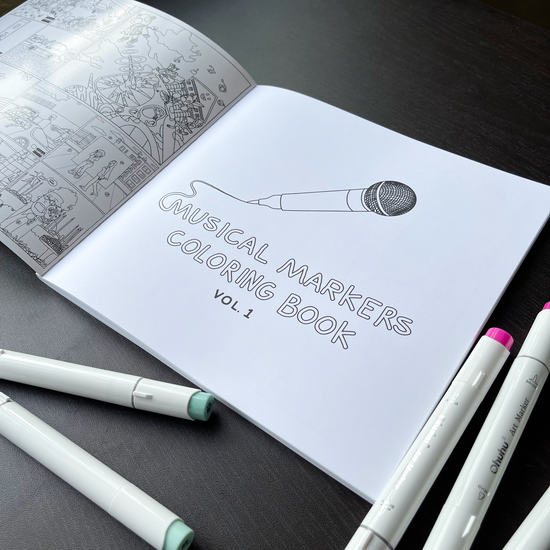 MUSICAL MARKERS
COLORING BOOK
VOL. 1
Ohuhu Art Marker